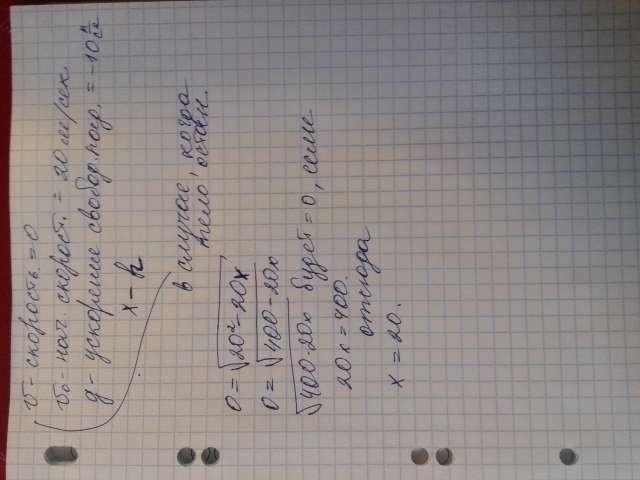 v - скорость = 0
v₀ - нач. скорост. = 20 м/сек.
g - ускорение свобод. пад. = -10 м/с²
x - h
в случае, когда
тело остан.
0 = √20² - 20x,
0 = √400 - 20x
√400 - 20x будет = 0, если
20x = 400.
отсюда
x = 20.